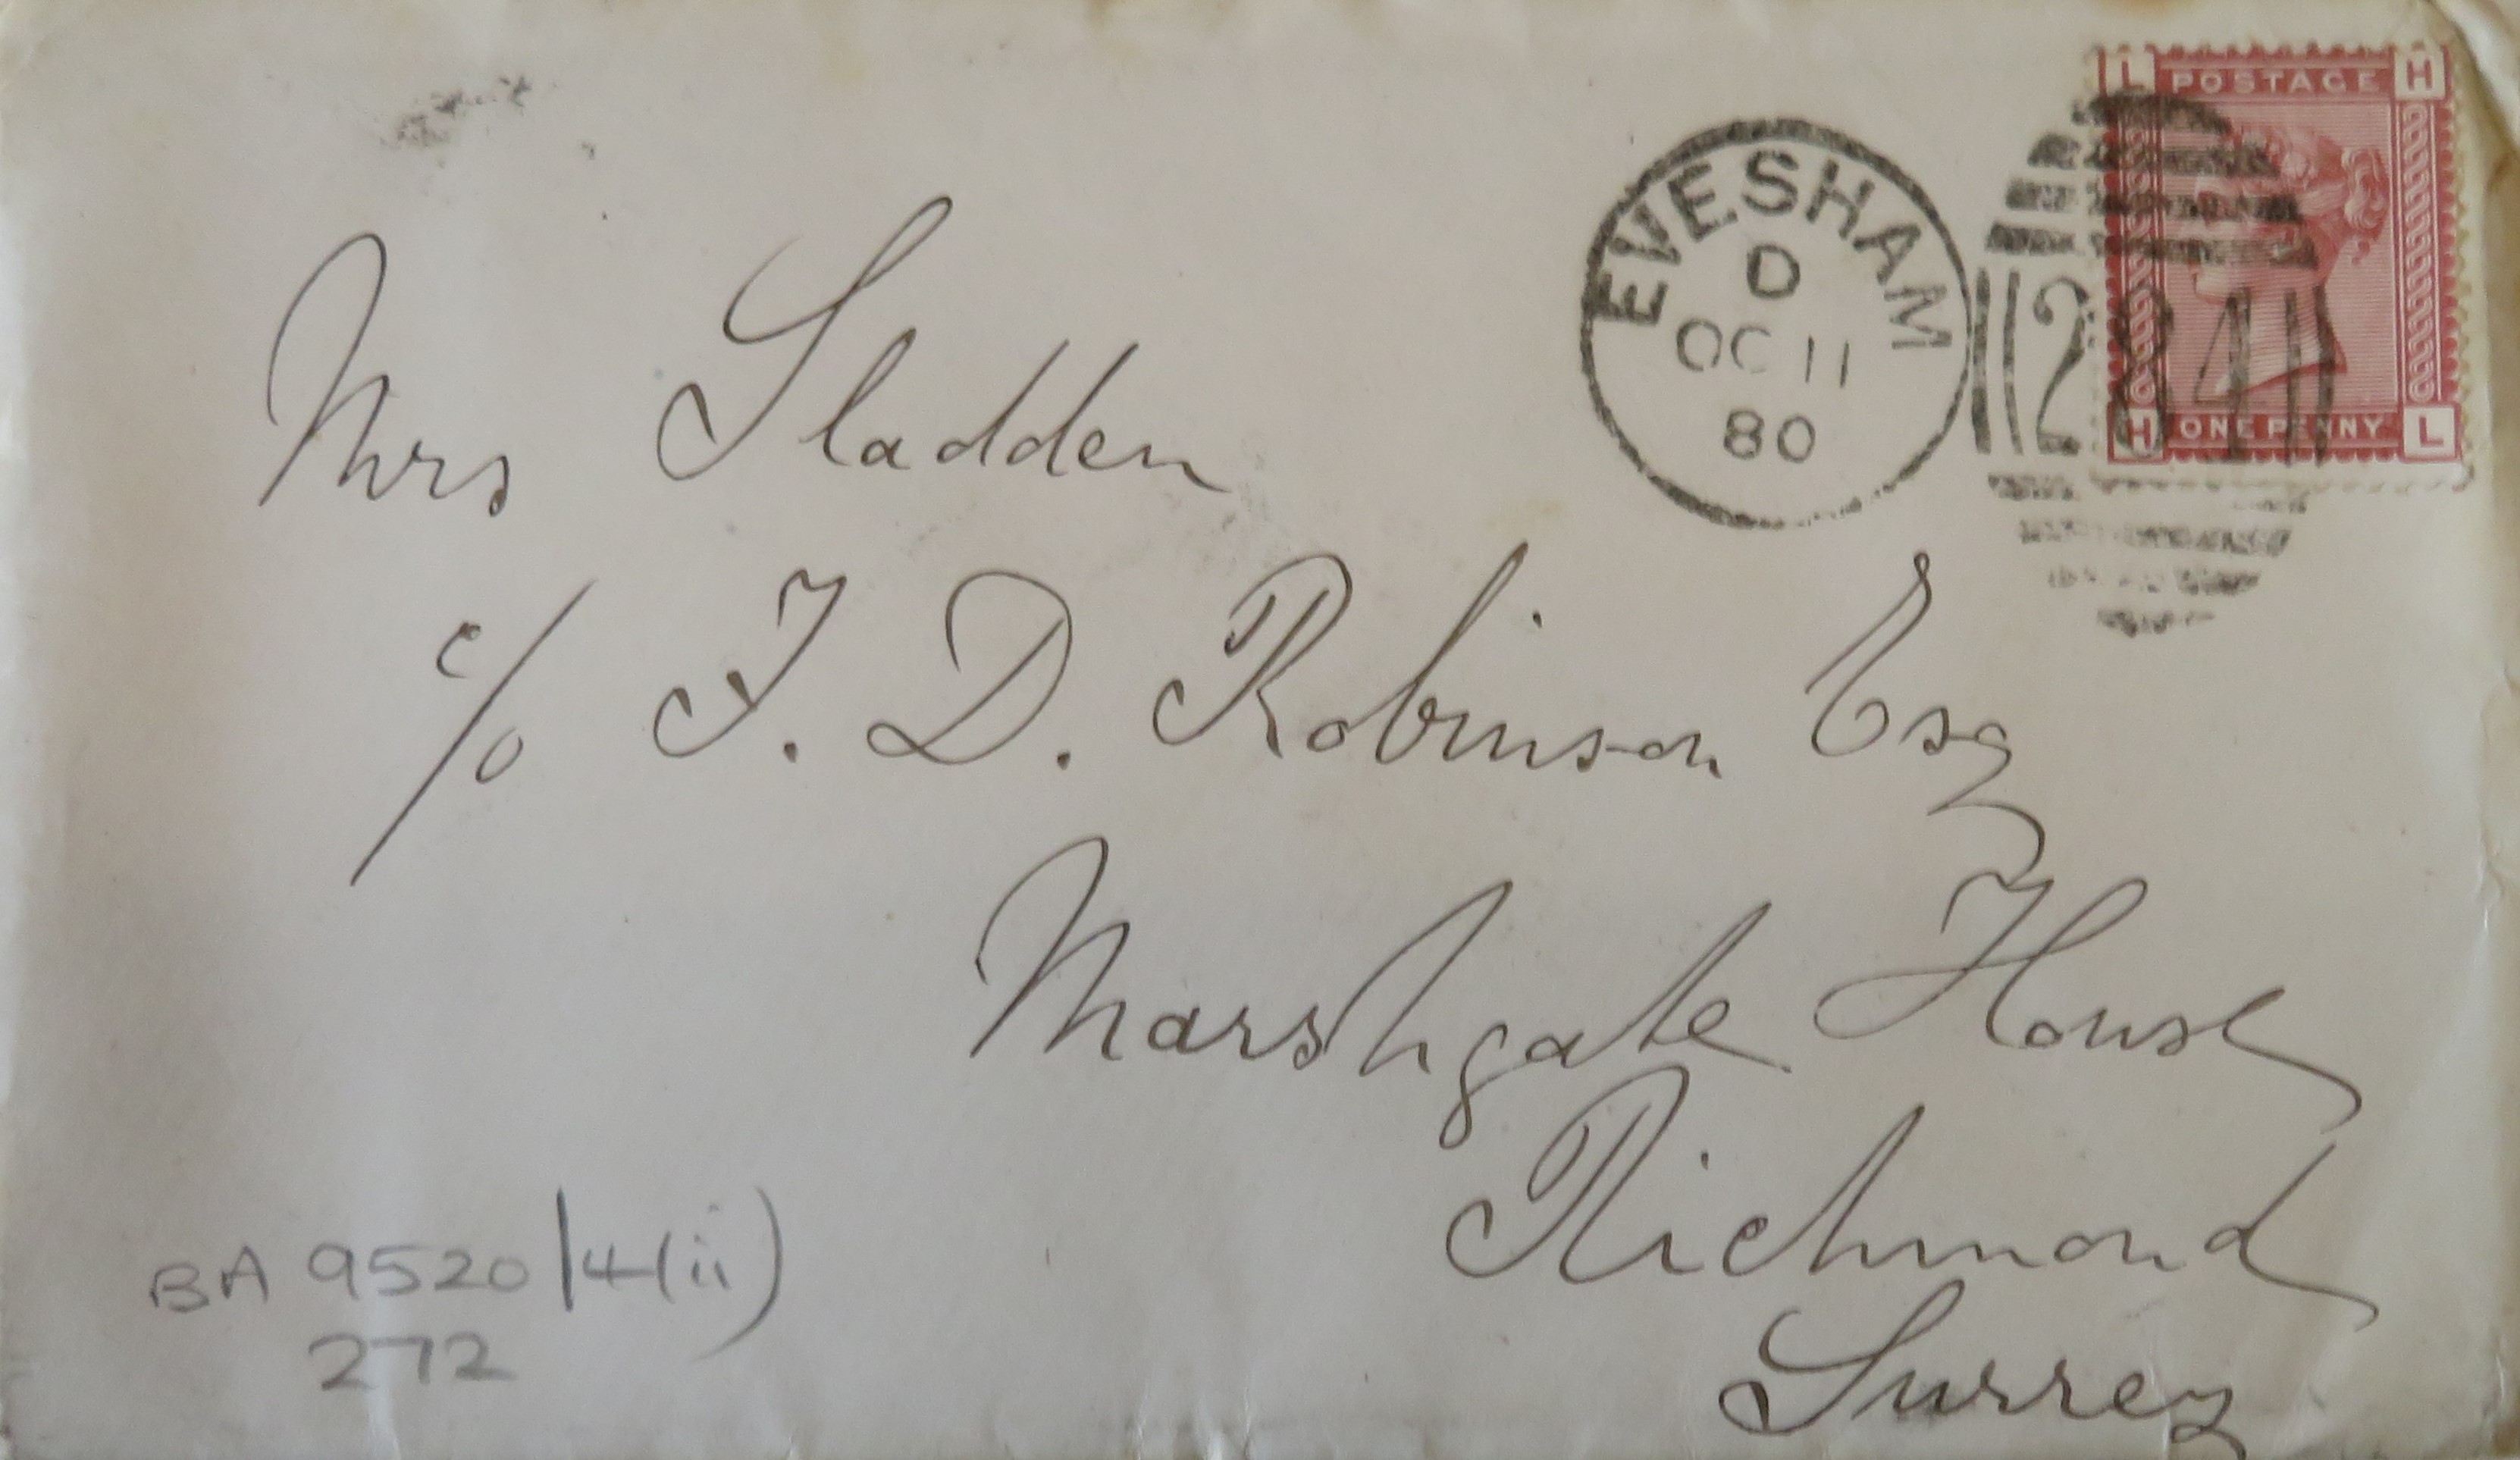 L POSTAGE H
EVESHAM
D
OC 11
80
284
H ONE PENNY L
Mrs Sladden
c/o T. D. Robinson Esq
Marshgate House
Richmond
Surrey
BA 9520/4(ii)
272